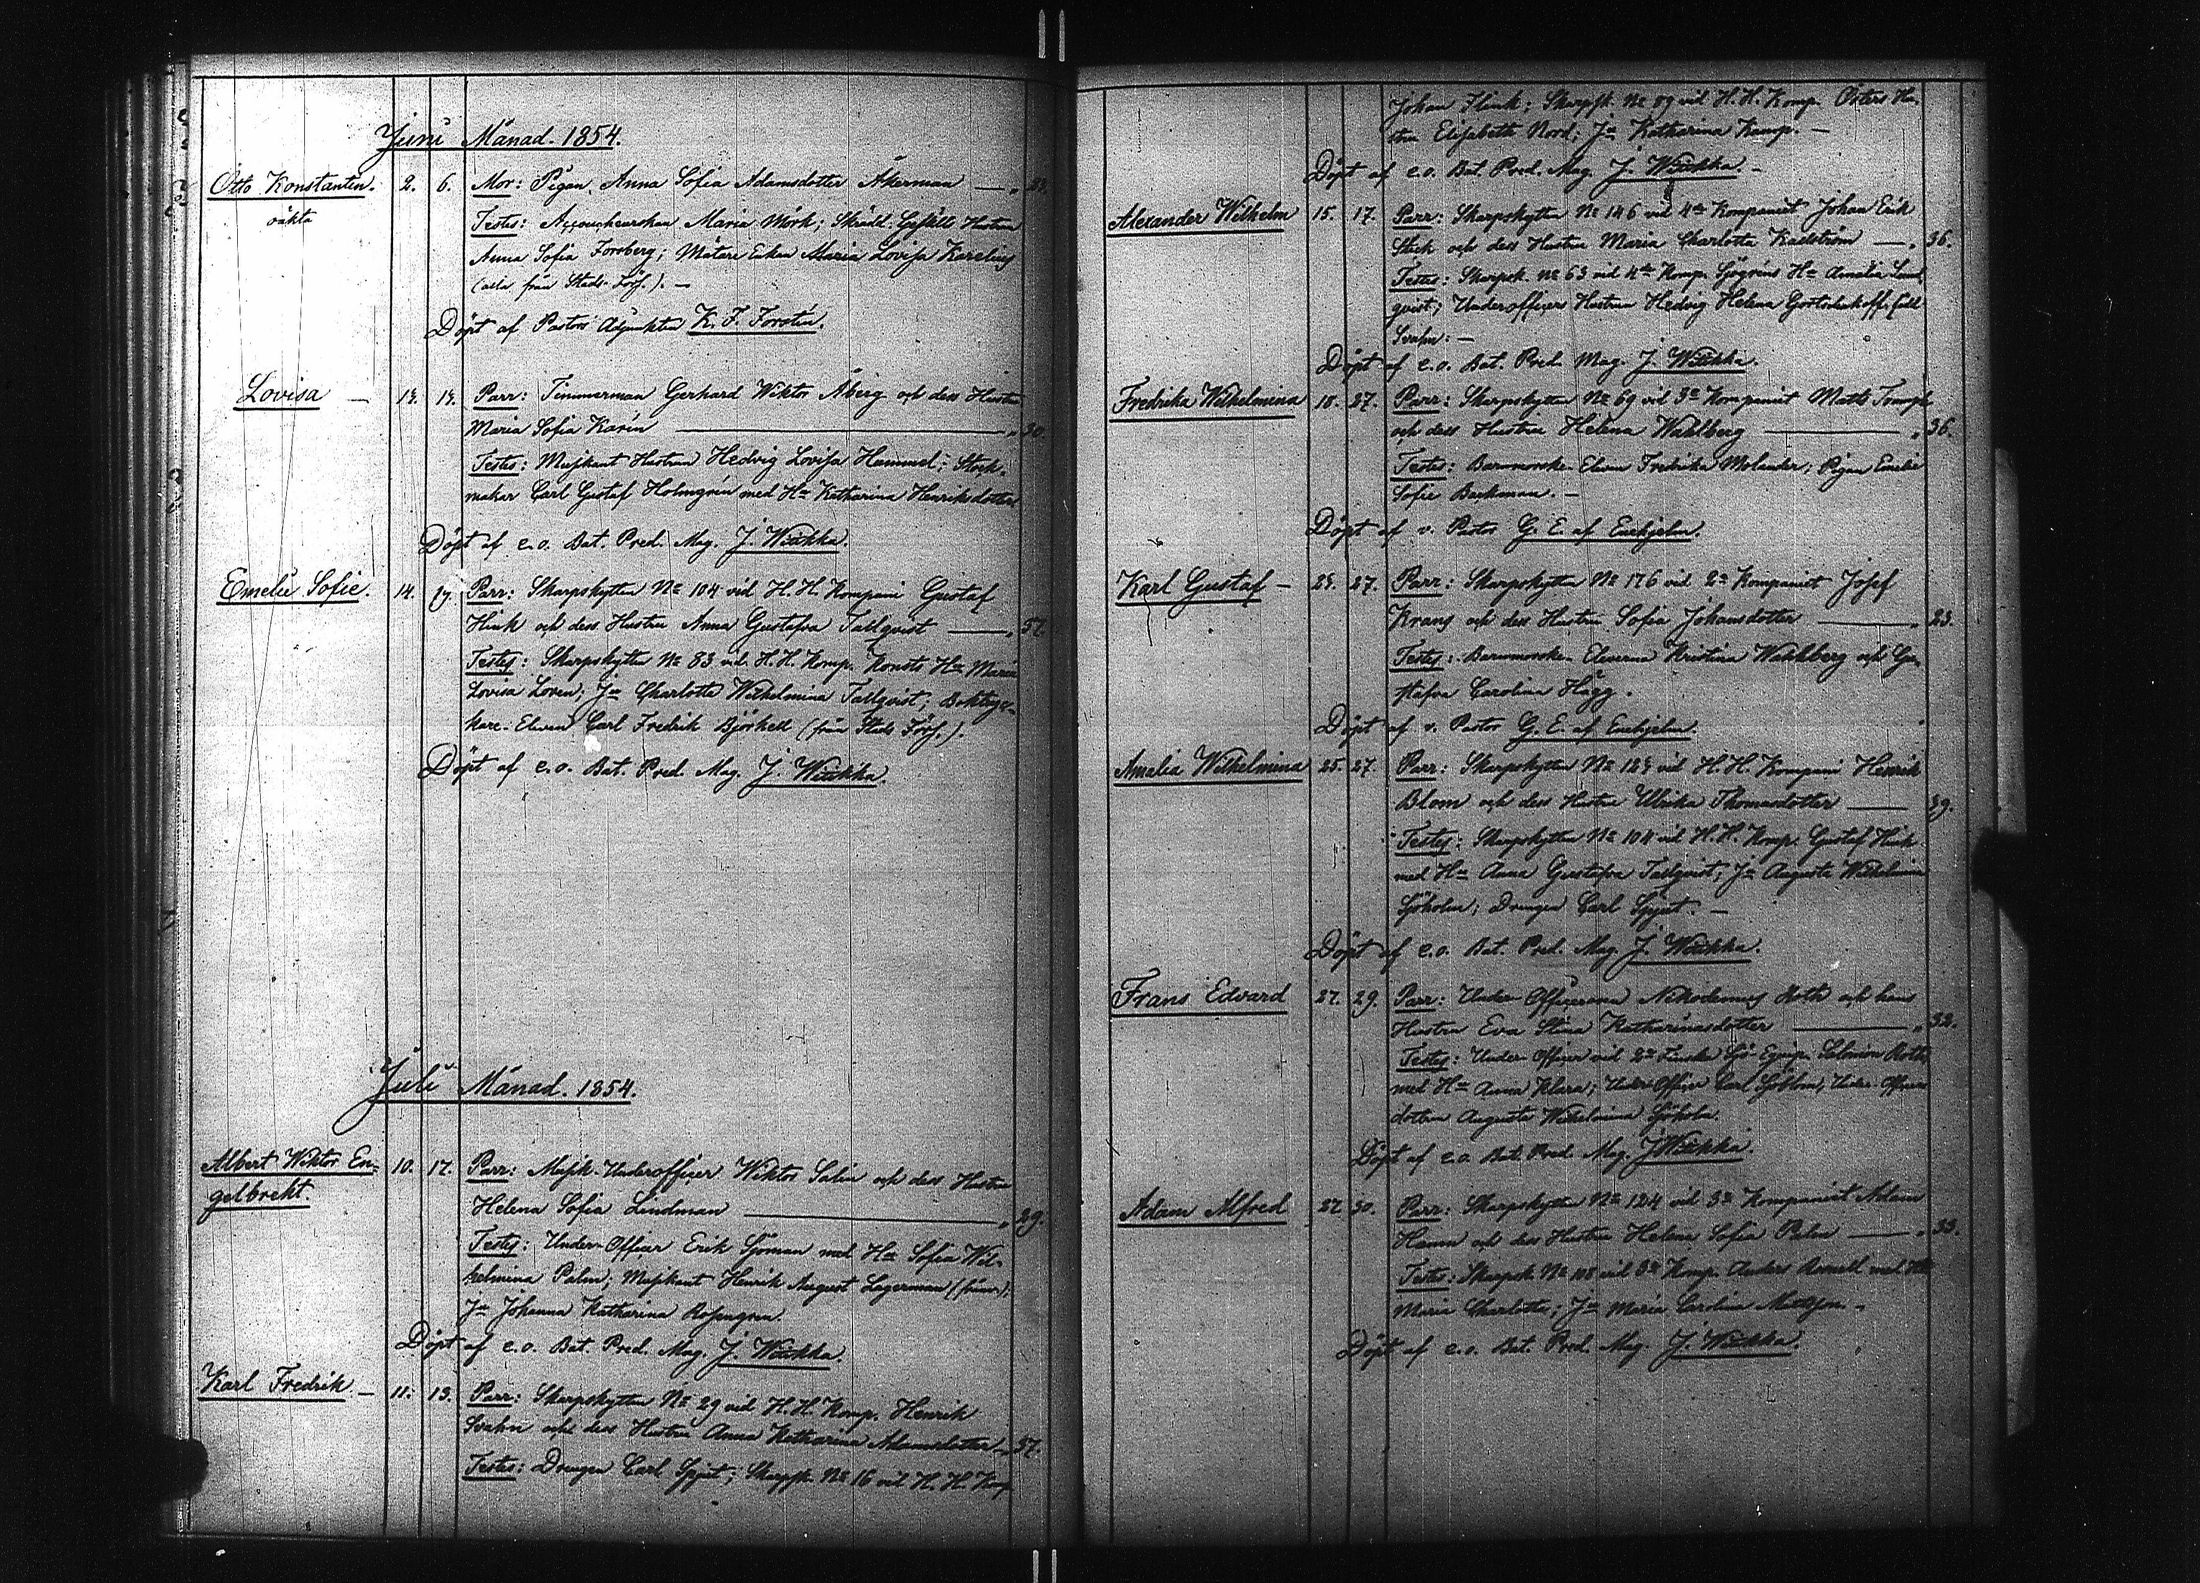 Juni Månad. 1854.
Otto Konstantin. 2. 6. Mor: Pigan, Anna Sofia Adamsdotter Åkerman — „ 23.
oäkta
Testes: Accoucheurskan Maria Mörk; Skrädd. Gesälls Hustrun
Anna Sofia Forsberg; Mätare Enkan Maria Lovisa Karelius
(alla från Stads Förs.). —
Döpt af Pastors Adjunkten K. F. Forstén.
Lovisa — 13. 13. Parr: Timmerman Gerhard Wiktor Åberg och dess Hustru
Maria Sofia Karén — „ 30.
Testes: Musikant Hustrun Hedvig Lovisa Hummel; Stock-
makar Carl Gustaf Holmgrén med Hu Katharina Henriksdotter
Döpt af e.o. Bat. Pred. Mag. J. Wäkka.
Emelie Sofie. 14. 17. Parr: Skarpskytten No 104 vid H. H. Kompani Gustaf
Hink och dess Hustru Anna Gustafva Tallqvist — „ 37.
Testes: Skarpskytten No 83 vid H. H. Komp. Konsts Hu Maria
Lovisa Loven; Jn Charlotta Wilhelmina Tallqvist; Boktryc-
kare-Eleven Carl Fredrik Björkell (från Stads Förs.).
Döpt af e.o. Bat. Pred. Mag. J. Wäkka.
Juli Månad. 1854.
Albert Wiktor En- 10. 17. Parr: Musik-Underofficer Wiktor Salin och dess Hustru
gelbrekt. Helena Sofia Lindman — „ 29.
Testes: Under-Officer Erik Sjöman med Hu Sofia Wil-
helmina Palm; Musikant Henrik August Lagerman
Jn Johanna Katharina Rosengren.
Döpt af e.o. Bat. Pred. Mag. J. Wäkka.
Karl Fredrik. — 11. 13. Parr: Skarpskytten No 29 vid H. H. Komp. Henrik
Svahn och dess Hustru Anna Katharina Adamsdotter — 37.
Testes: Drengen Carl Spjut; Skarpsk. No 16 vid H. H. Komp.
Johan Flink; Skarpsk. No 89 vid H. H. Komp. Östers Hu-
stru Elisabeth Nord; Jn Katharina Kamp. —
Döpt af e.o. Bat. Pred. Mag. J. Wäkka. —
Alexander Wilhelm 15. 17. Parr: Skarpskytten No 146 vid 4de Kompaniet Johan Erik
Stick och dess Hustru Maria Charlotta Kadström — „ 36.
Testes: Skarpsk. No 63 vid 4de Komp. Sjögréns Hu Amalia Lind-
qvist; Underofficers Hustrun Hedvig Helena
Svahn: —
Döpt af e.o. Bat. Pred. Mag. J. Wäkka.
Fredrika Wilhelmina 18. 27. Parr: Skarpskytten No 69 vid 3e Kompaniet Matts
och dess Hustru Helena Wahlberg — „ 36.
Testes: Barnmorske-Eleven Fredrika Molander; Pigan Emelie
Sofie Backman. —
Döpt af v. Pastor G. E. af Enehjelm.
Karl Gustaf — 23. 27. Parr: Skarpskytten No 176 vid 2a Kompaniet Josef
Krans och dess Hustru Sofia Johansdotter — „ 23.
Testes: Barnmorske-Eleverna Kristina Wahlberg och Gu-
stafva Carolina Hägg.
Döpt af v. Pastor G. E. af Enehjelm.
Amalia Wilhelmina 25. 27. Parr: Skarpskytten No 123 vid H. H. Kompani Henrik
Blom och dess Hustru Ulrika Thomasdotter — 39.
Testes: Skarpskytten No 104 vid H. H. Komp. Gustaf Hink
med Hu Anna Gustafva Tallqvist; Jn Augusta Wilhelmina
Sjöholm; Drengen Carl Spjut. —
Döpt af e.o. Bat. Pred. Mag. J. Wäkka.
Frans Edvard 27. 29. Parr: Under-Officeraren Nikodemus Roth och hans
Hustru Eva Stina Katharinasdotter — „ 32.
Testes: Under-Officer vid 2a Finska Sjö-Equip. Salomon Roth
med Hu Anna Klara; Under-Officer Carl Sjöblom; Under-Officers
dottern Augusta Wilhelmina Sjöholm.
Döpt af e.o. Bat. Pred. Mag. J. Wäkka.
Adam Alfred 27. 30. Parr: Skarpskytten No 124 vid 3e Kompaniet Adam
Hamn och dess Hustru Helena Sofia Palm — „ 33.
Testes: Skarpsk. No 118 vid 3e Komp. Anders med Hu
Maria Charlotta; Jn Maria Carolina Mattsson. —
Döpt af e.o. Bat. Pred. Mag. J. Wäkka.